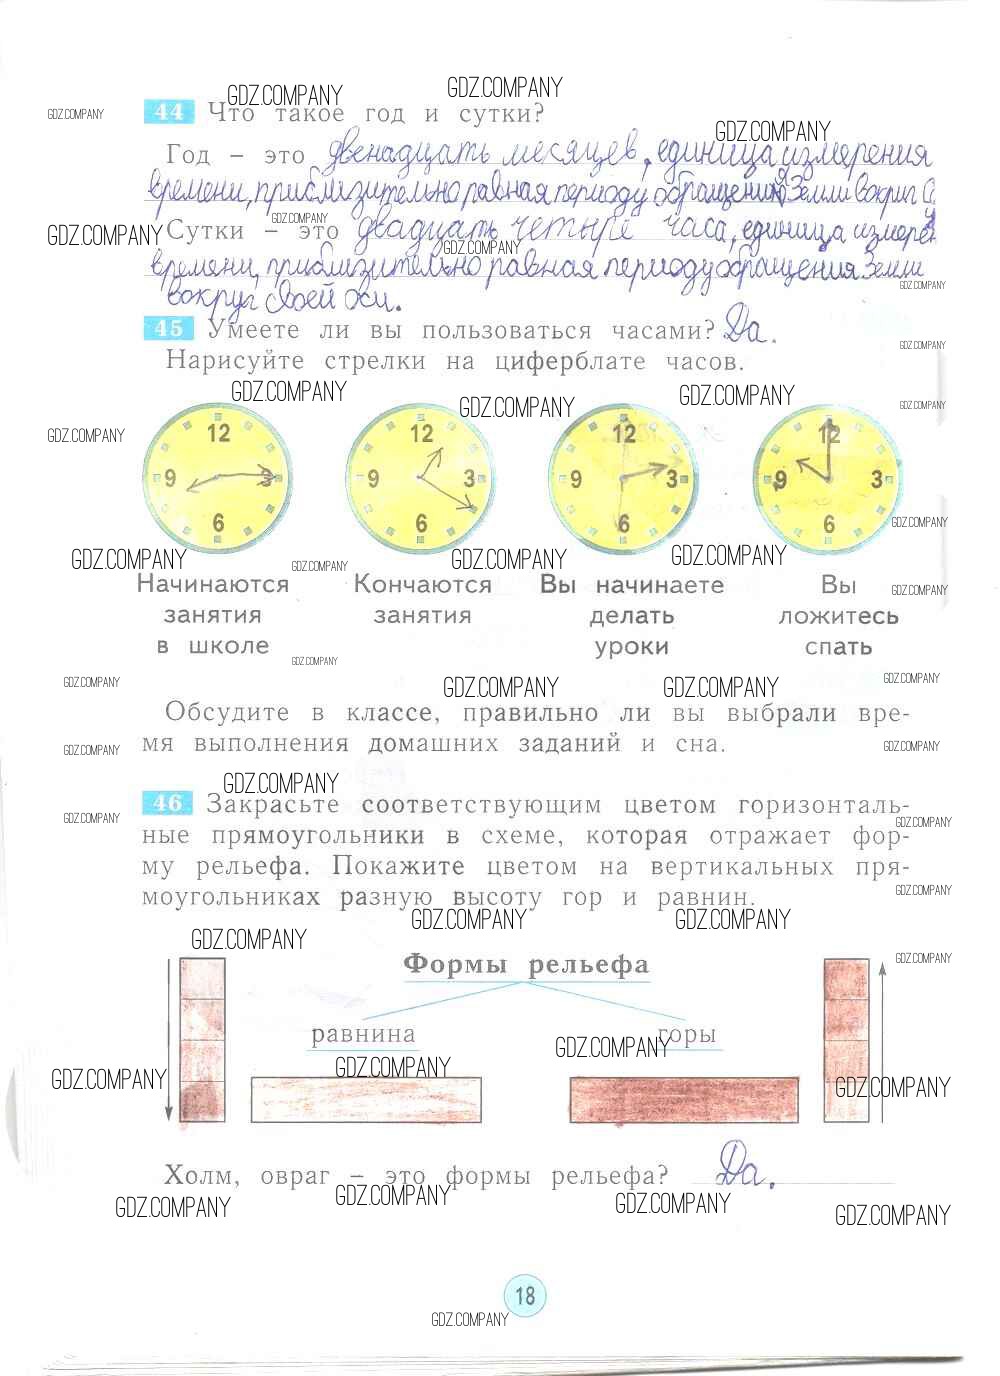 GDZ.COMPANY GDZ.COMPANY
GDZ.COMPANY
44 Что такое год и сутки?
GDZ.COMPANY
Год – это двенадцать месяцев, единица измерения
времени, приблизительно равная периоду обращения Земли вокруг С
GDZ.COMPANY
GDZ.COMPANY Сутки – это двадцать четыре часа, единица измерен
GDZ.COMPANY
времени, приблизительно равная периоду обращения Земли
вокруг своей оси.
GDZ.COMPANY
45 Умеете ли вы пользоваться часами? Да.
GDZ.COMPANY
Нарисуйте стрелки на циферблате часов.
GDZ.COMPANY GDZ.COMPANY GDZ.COMPANY GDZ.COMPANY
GDZ.COMPANY
12 12 12 12
9 3 9 3 9 3 9 3
6 6 6 6
GDZ.COMPANY
GDZ.COMPANY GDZ.COMPANY GDZ.COMPANY GDZ.COMPANY
Начинаются Кончаются Вы начинаете Вы
GDZ.COMPANY
занятия занятия делать ложитесь
в школе уроки спать
GDZ.COMPANY
GDZ.COMPANY GDZ.COMPANY GDZ.COMPANY GDZ.COMPANY
Обсудите в классе, правильно ли вы выбрали вре-
мя выполнения домашних заданий и сна.
GDZ.COMPANY GDZ.COMPANY
GDZ.COMPANY
46 Закрасьте соответствующим цветом горизонталь-
GDZ.COMPANY GDZ.COMPANY
ные прямоугольники в схеме, которая отражает фор-
му рельефа. Покажите цветом на вертикальных пря-
GDZ.COMPANY
моугольниках разную высоту гор и равнин.
GDZ.COMPANY GDZ.COMPANY
GDZ.COMPANY
Формы рельефа
GDZ.COMPANY
равнина горы
GDZ.COMPANY
GDZ.COMPANY GDZ.COMPANY GDZ.COMPANY
Холм, овраг – это формы рельефа? Да.
GDZ.COMPANY GDZ.COMPANY GDZ.COMPANY GDZ.COMPANY
18
GDZ.COMPANY